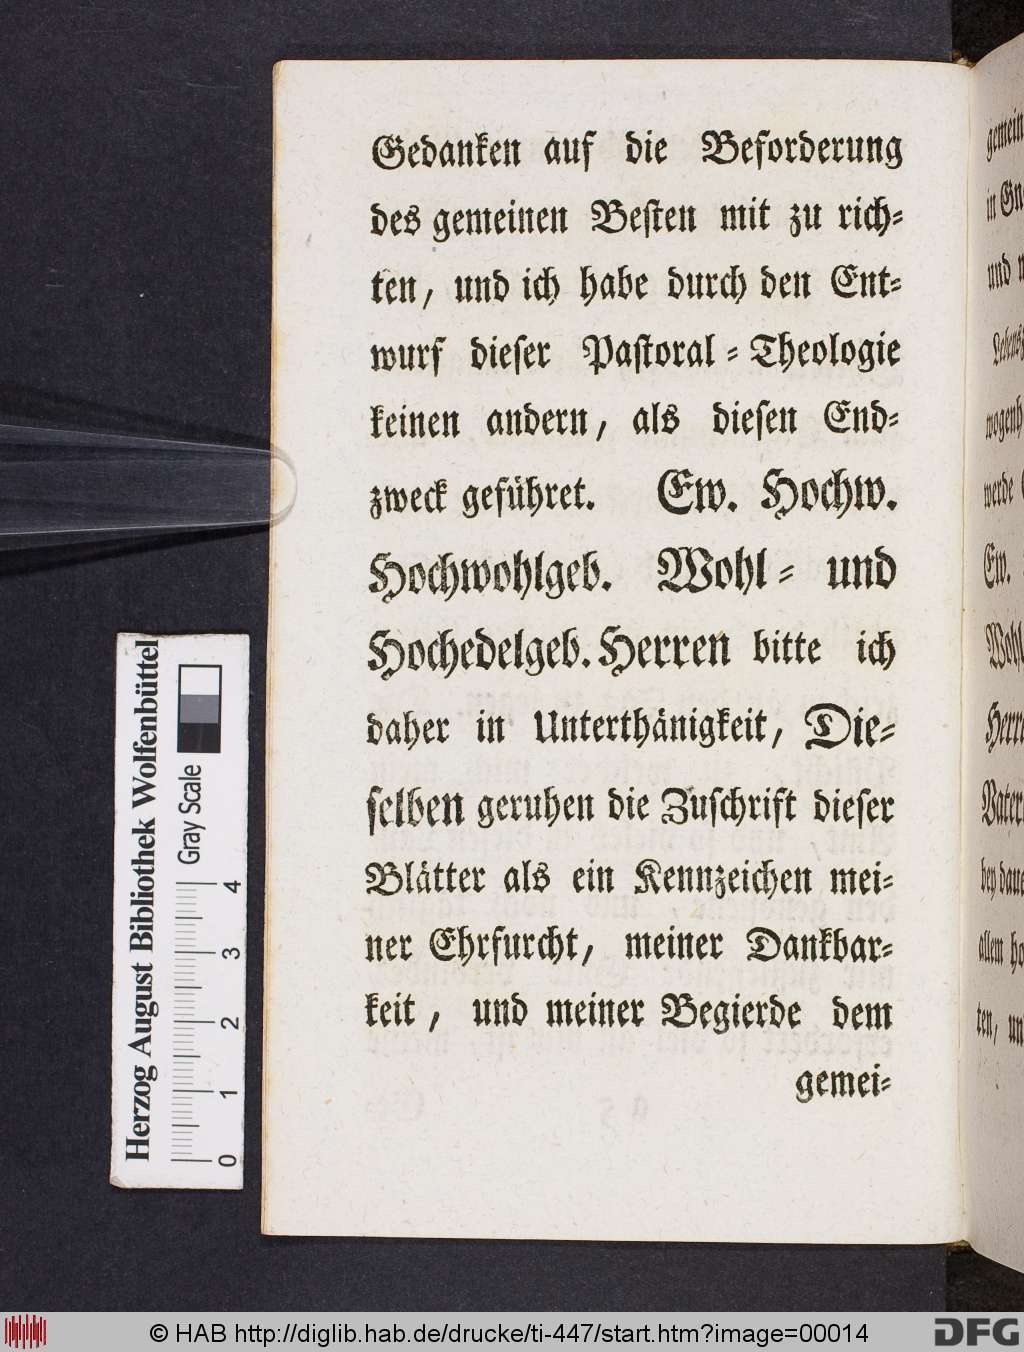 Gedanken auf die Beforderung
des gemeinen Besten mit zu rich-
ten, und ich habe durch den Ent-
wurf dieser Pastoral-Theologie
keinen andern, als diesen End-
zweck geführet. Ew. Hochw.
Hochwohlgeb. Wohl- und
Hochedelgeb. Herren bitte ich
daher in Unterthänigkeit, Die-
selben geruhen die Zuschrift dieser
Blätter als ein Kennzeichen mei-
ner Ehrfurcht, meiner Dankbar-
keit, und meiner Begierde dem
gemei-
gemein
in
und
Ew.
allem
ten,
Herzog August Bibliothek Wolfenbüttel
Gray Scale
0 1 2 3 4
© HAB http://diglib.hab.de/drucke/ti-447/start.htm?image=00014
DFG